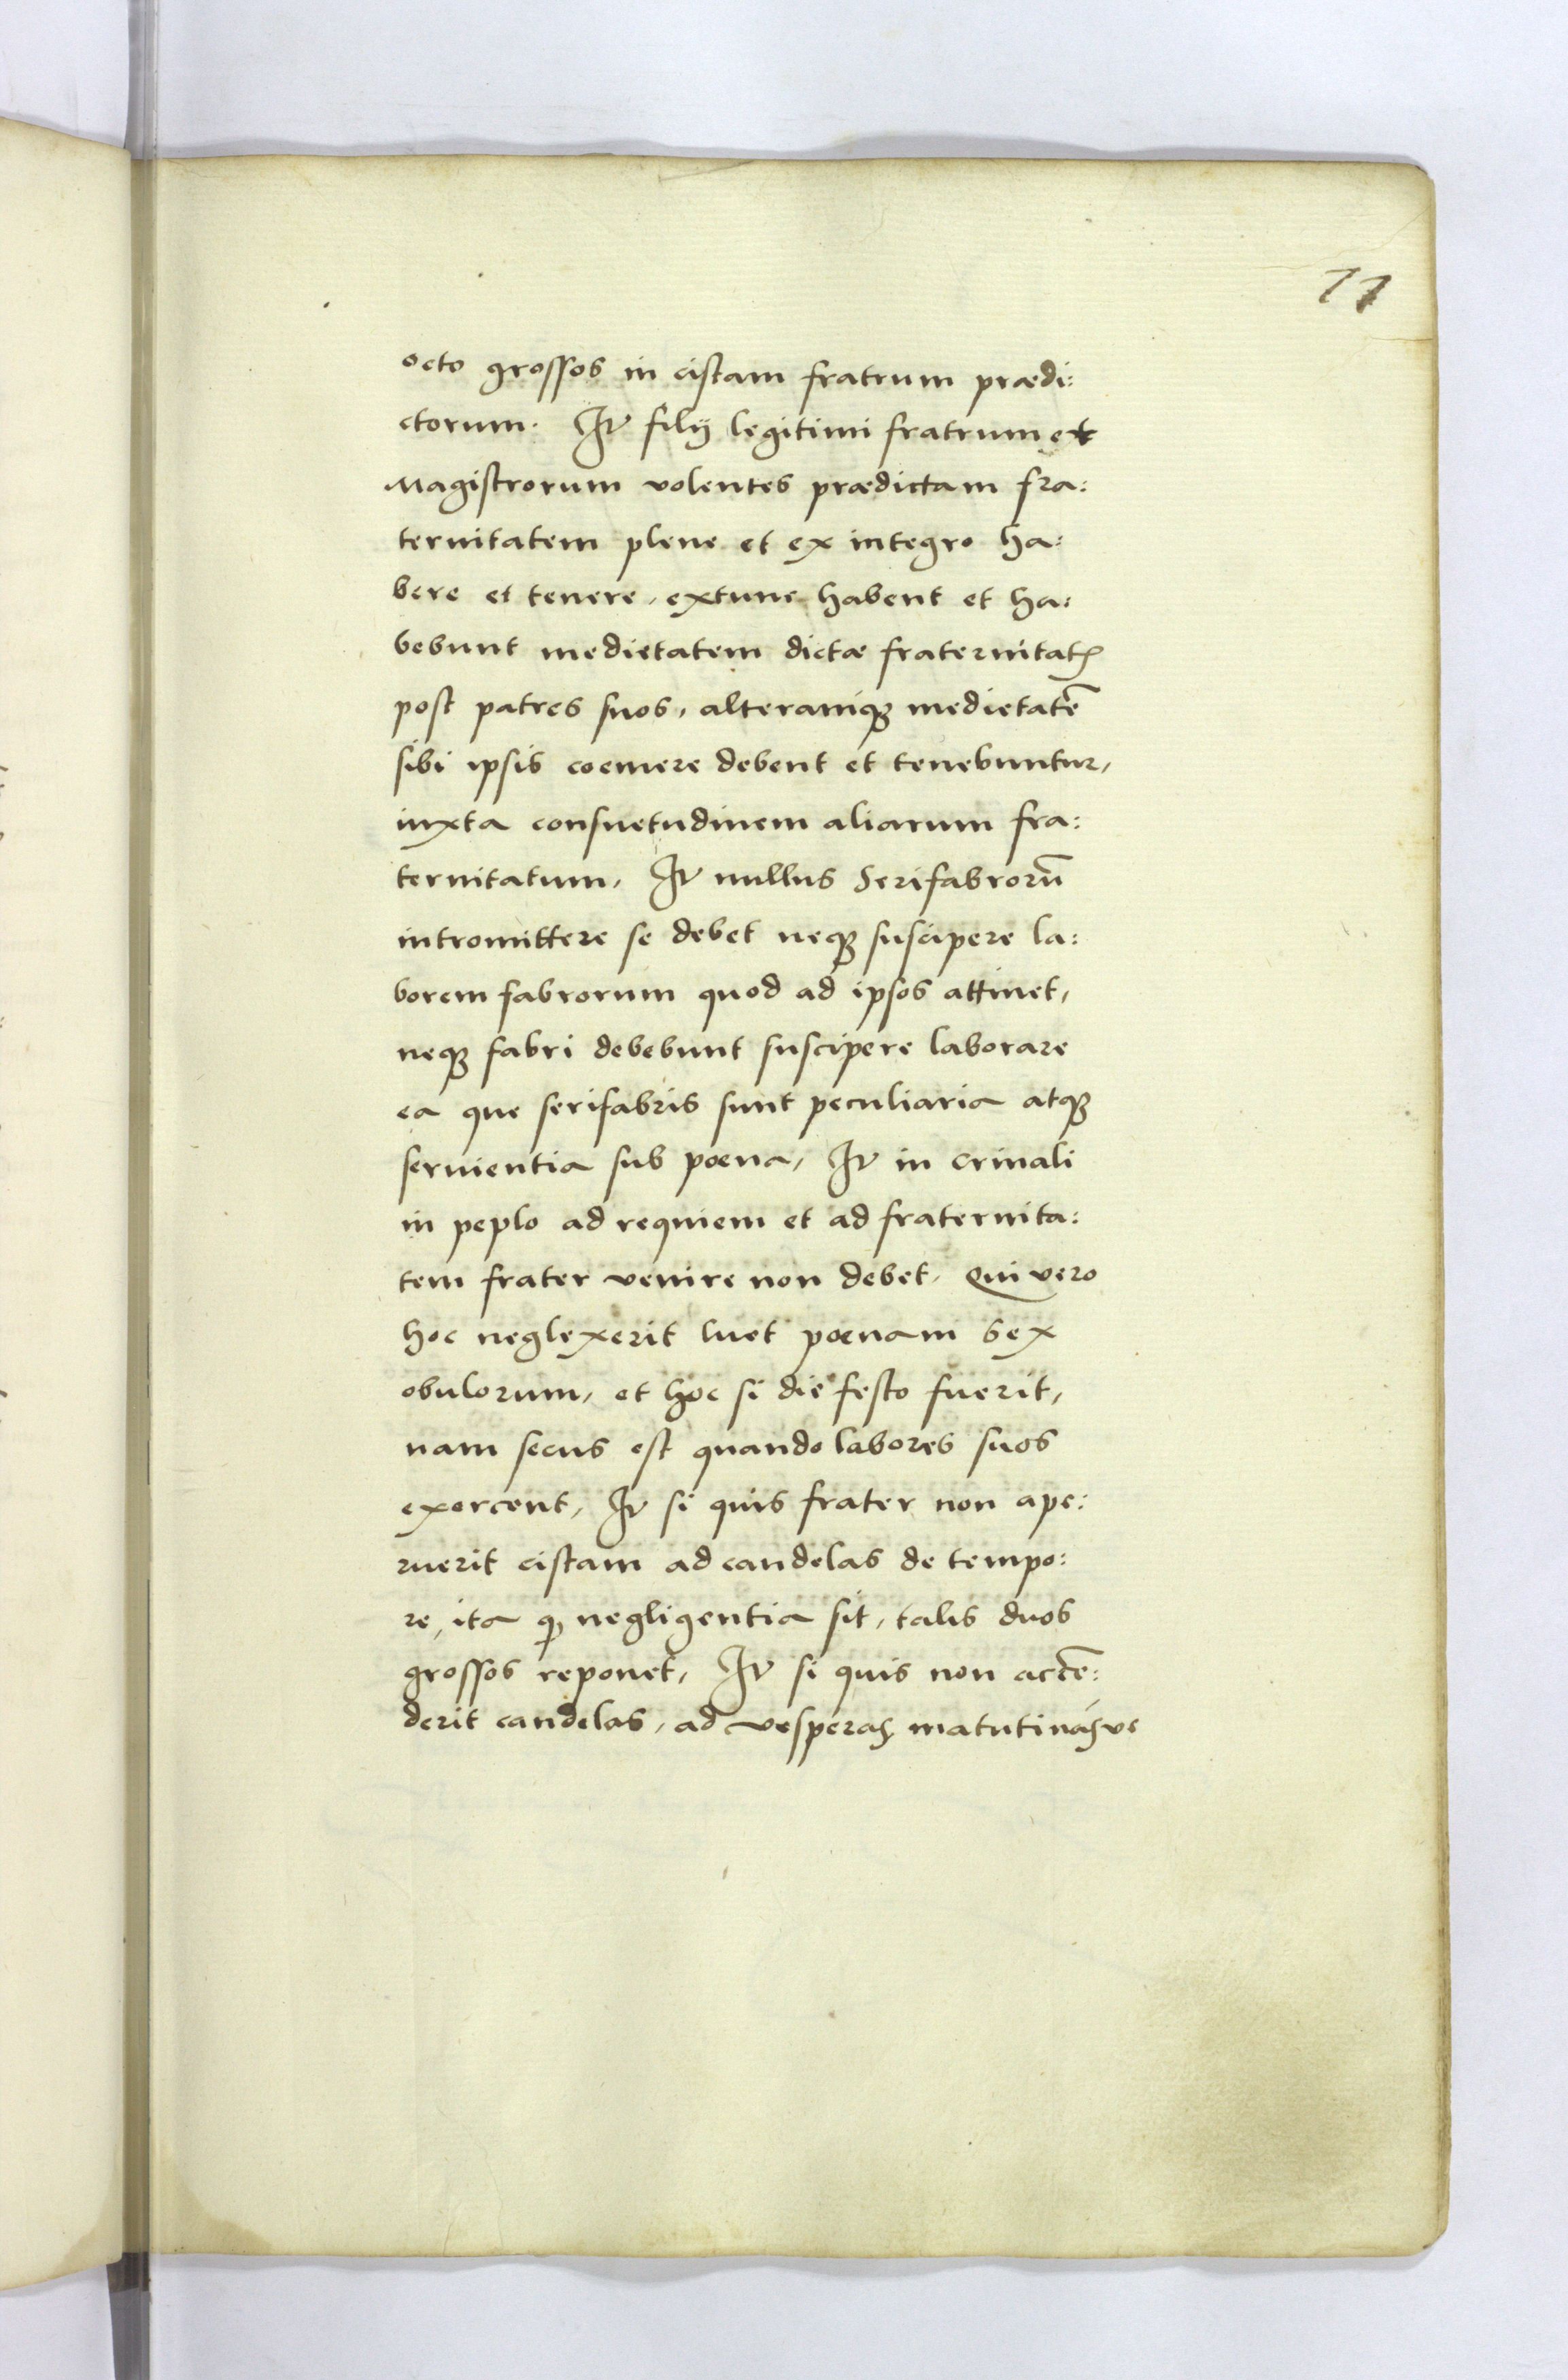 11
octo grossos in cistam fratrum prædi:
ctorum. It filij legitimi fratrum et
Magistrorum volentes prædictam fra:
ternitatem plene et ex integro ha:
bere et tenere, extunc habent et ha:
bebunt medietatem dictæ fraternitatꝭ
post patres suos, alteramqꝫ medietatē
sibi ipsis coemere debent et tenebuntur,
iuxta consuetudinem aliarum fra:
ternitatum, It nullus Serifabrorū
intromittere se debet neqꝫ suscipere la:
borem fabrorum quod ad ipsos attinet,
neqꝫ fabri debebunt suscipere laborare
ea que serifabris sunt peculiaria atqꝫ
seruientia sub poena, It in crinali
in peplo ad requiem et ad fraternita:
tem frater venire non debet, Qui vero
hoc neglexerit luet poenam sex
obulorum, et hoc si die festo fuerit,
nam secus est quando labores suos
exercent, It si quis frater non ape:
ruerit cistam ad candelas de tempo:
re, ita ꝙ negligentia sit, talis duos
grossos reponet, It si quis non accē:
derit candelas, ad vesperas matutinásve